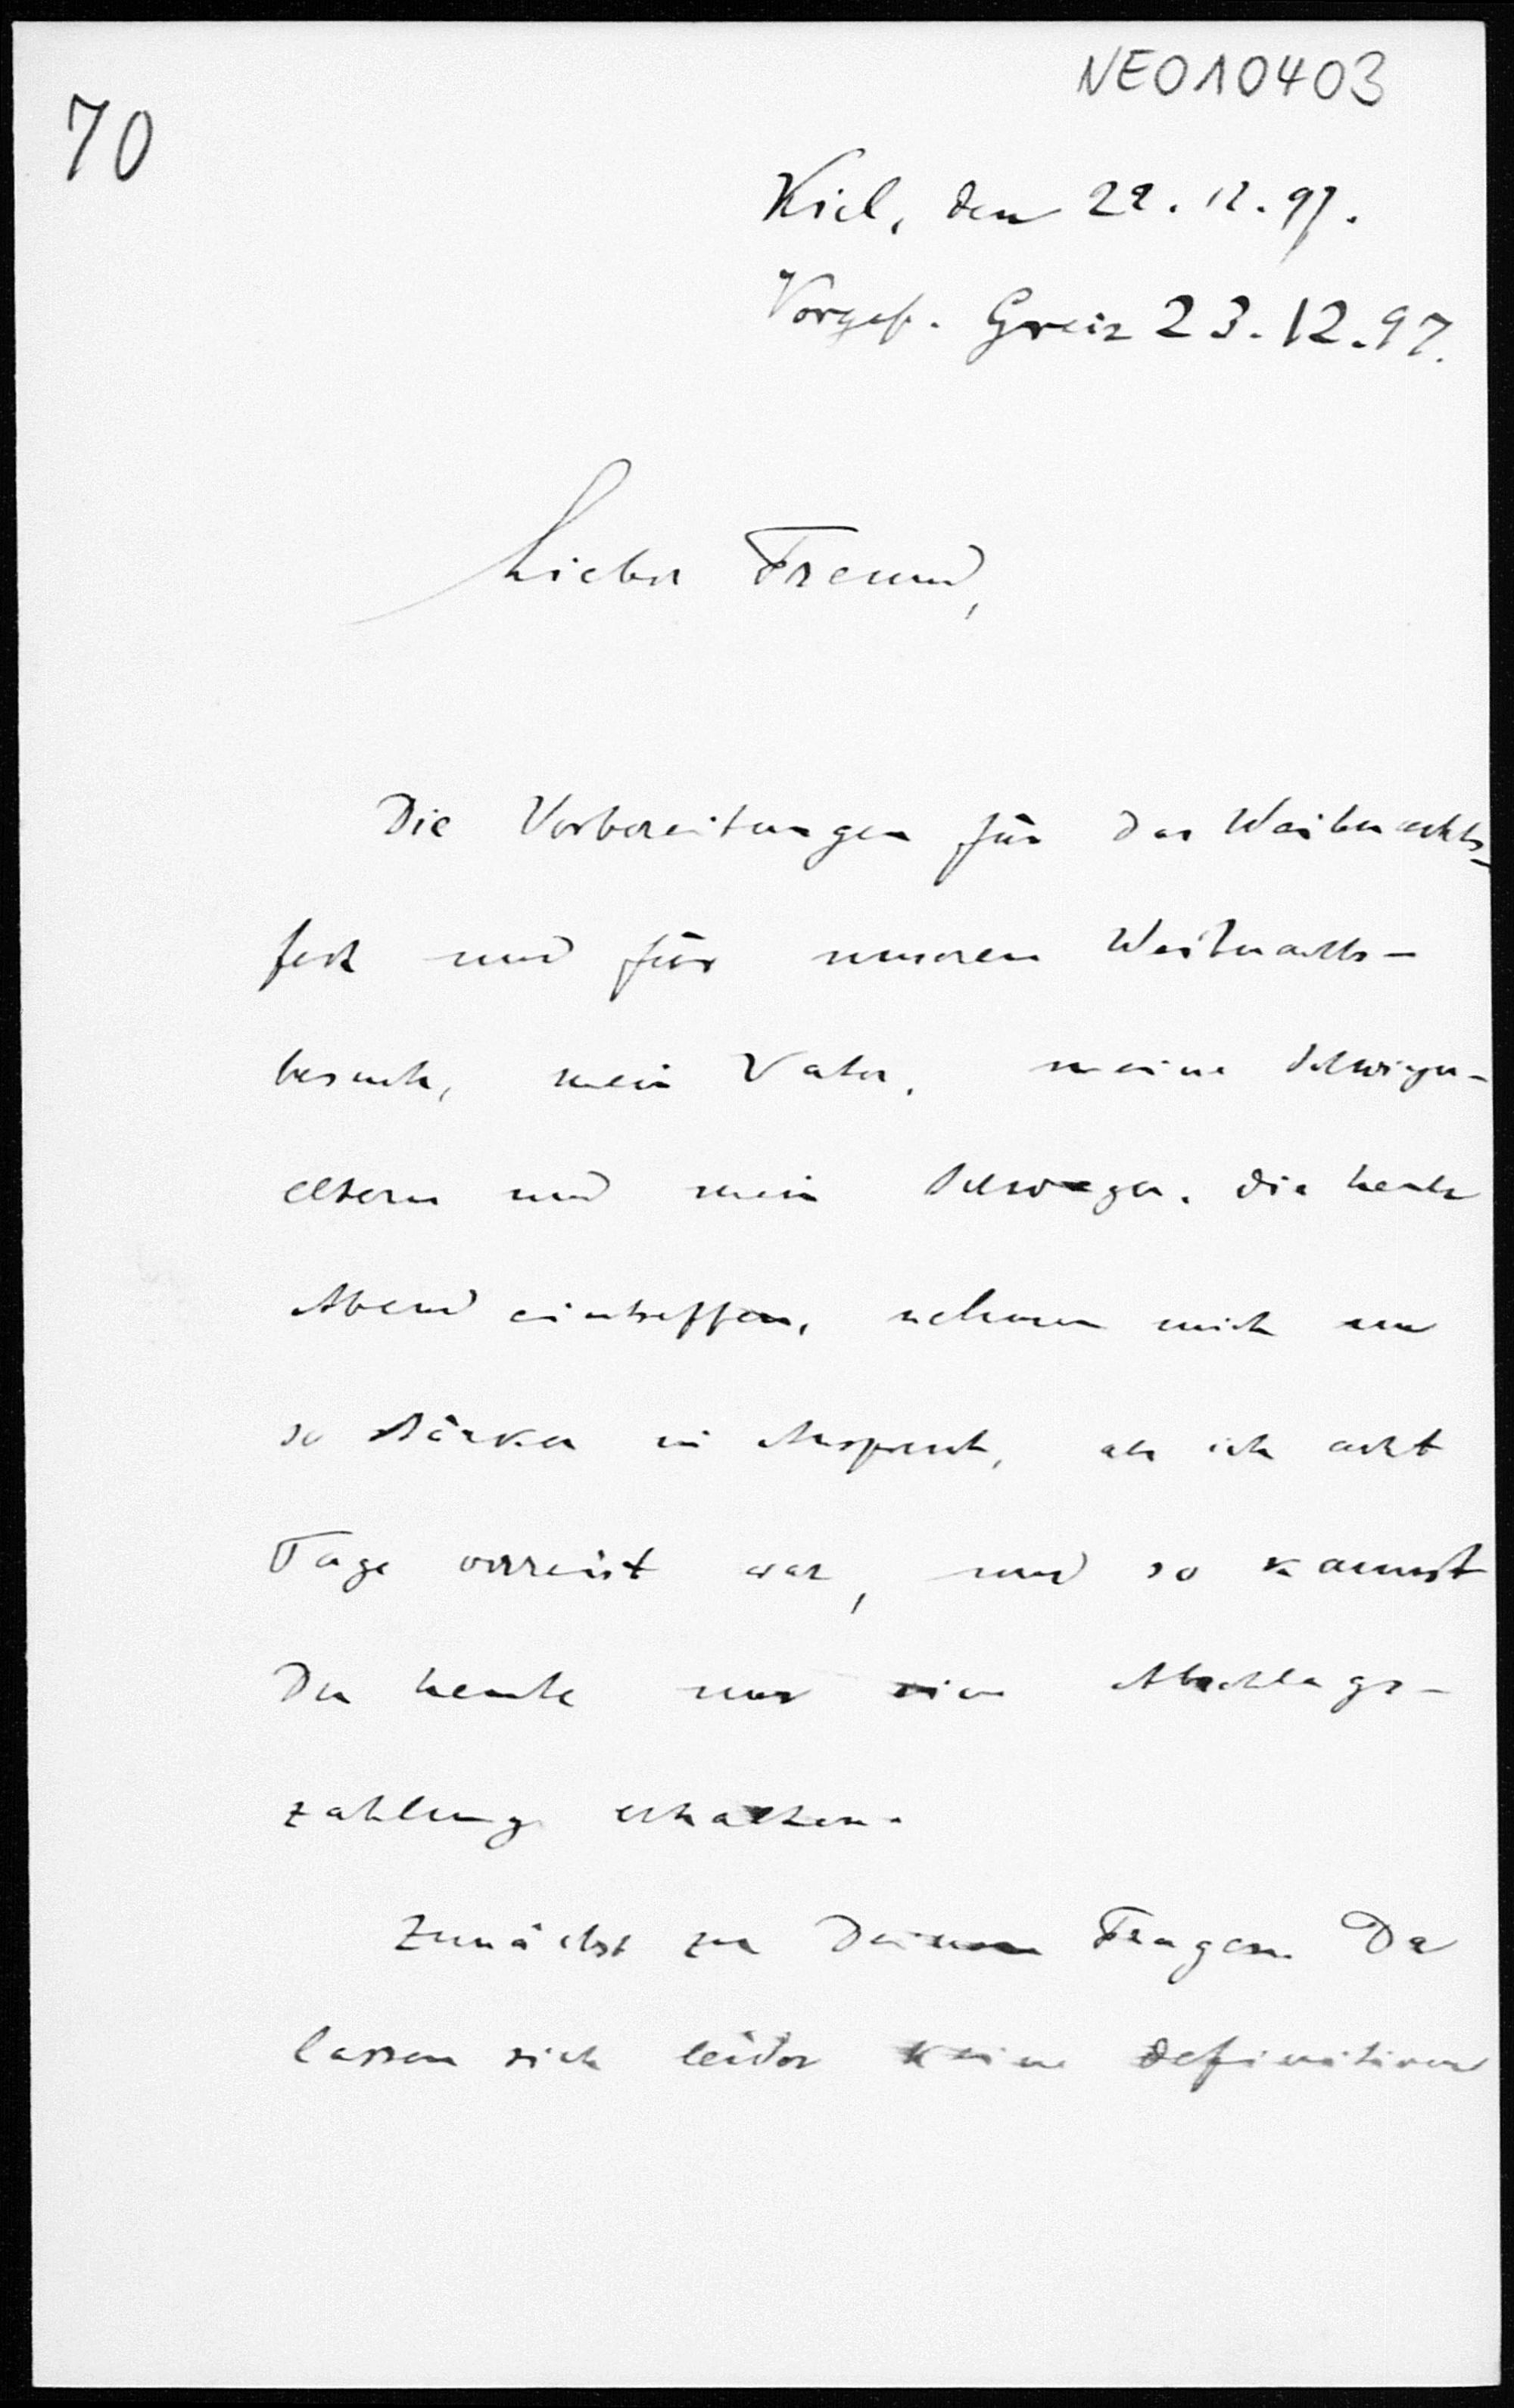 NEO10403
70
Kiel, den 22.12.97.
Vorgef. Greiz 23.12.97.
Lieber Freund,
Die Vorbereitungen für das Weihnachts-
fest und für unseren Weihnachts-
besuch, mein Vater, meine Schwieger-
eltern und mein Schwager, die heute
Abend eintreffen, nehmen mich um
so stärker in Anspruch, als ich acht
Tage verreist war, und so kannst
Du heute nur eine Abschlags-
zahlung erhalten.
Zunächst zu Deinen Fragen. Da
lassen sich leider keine definitiven